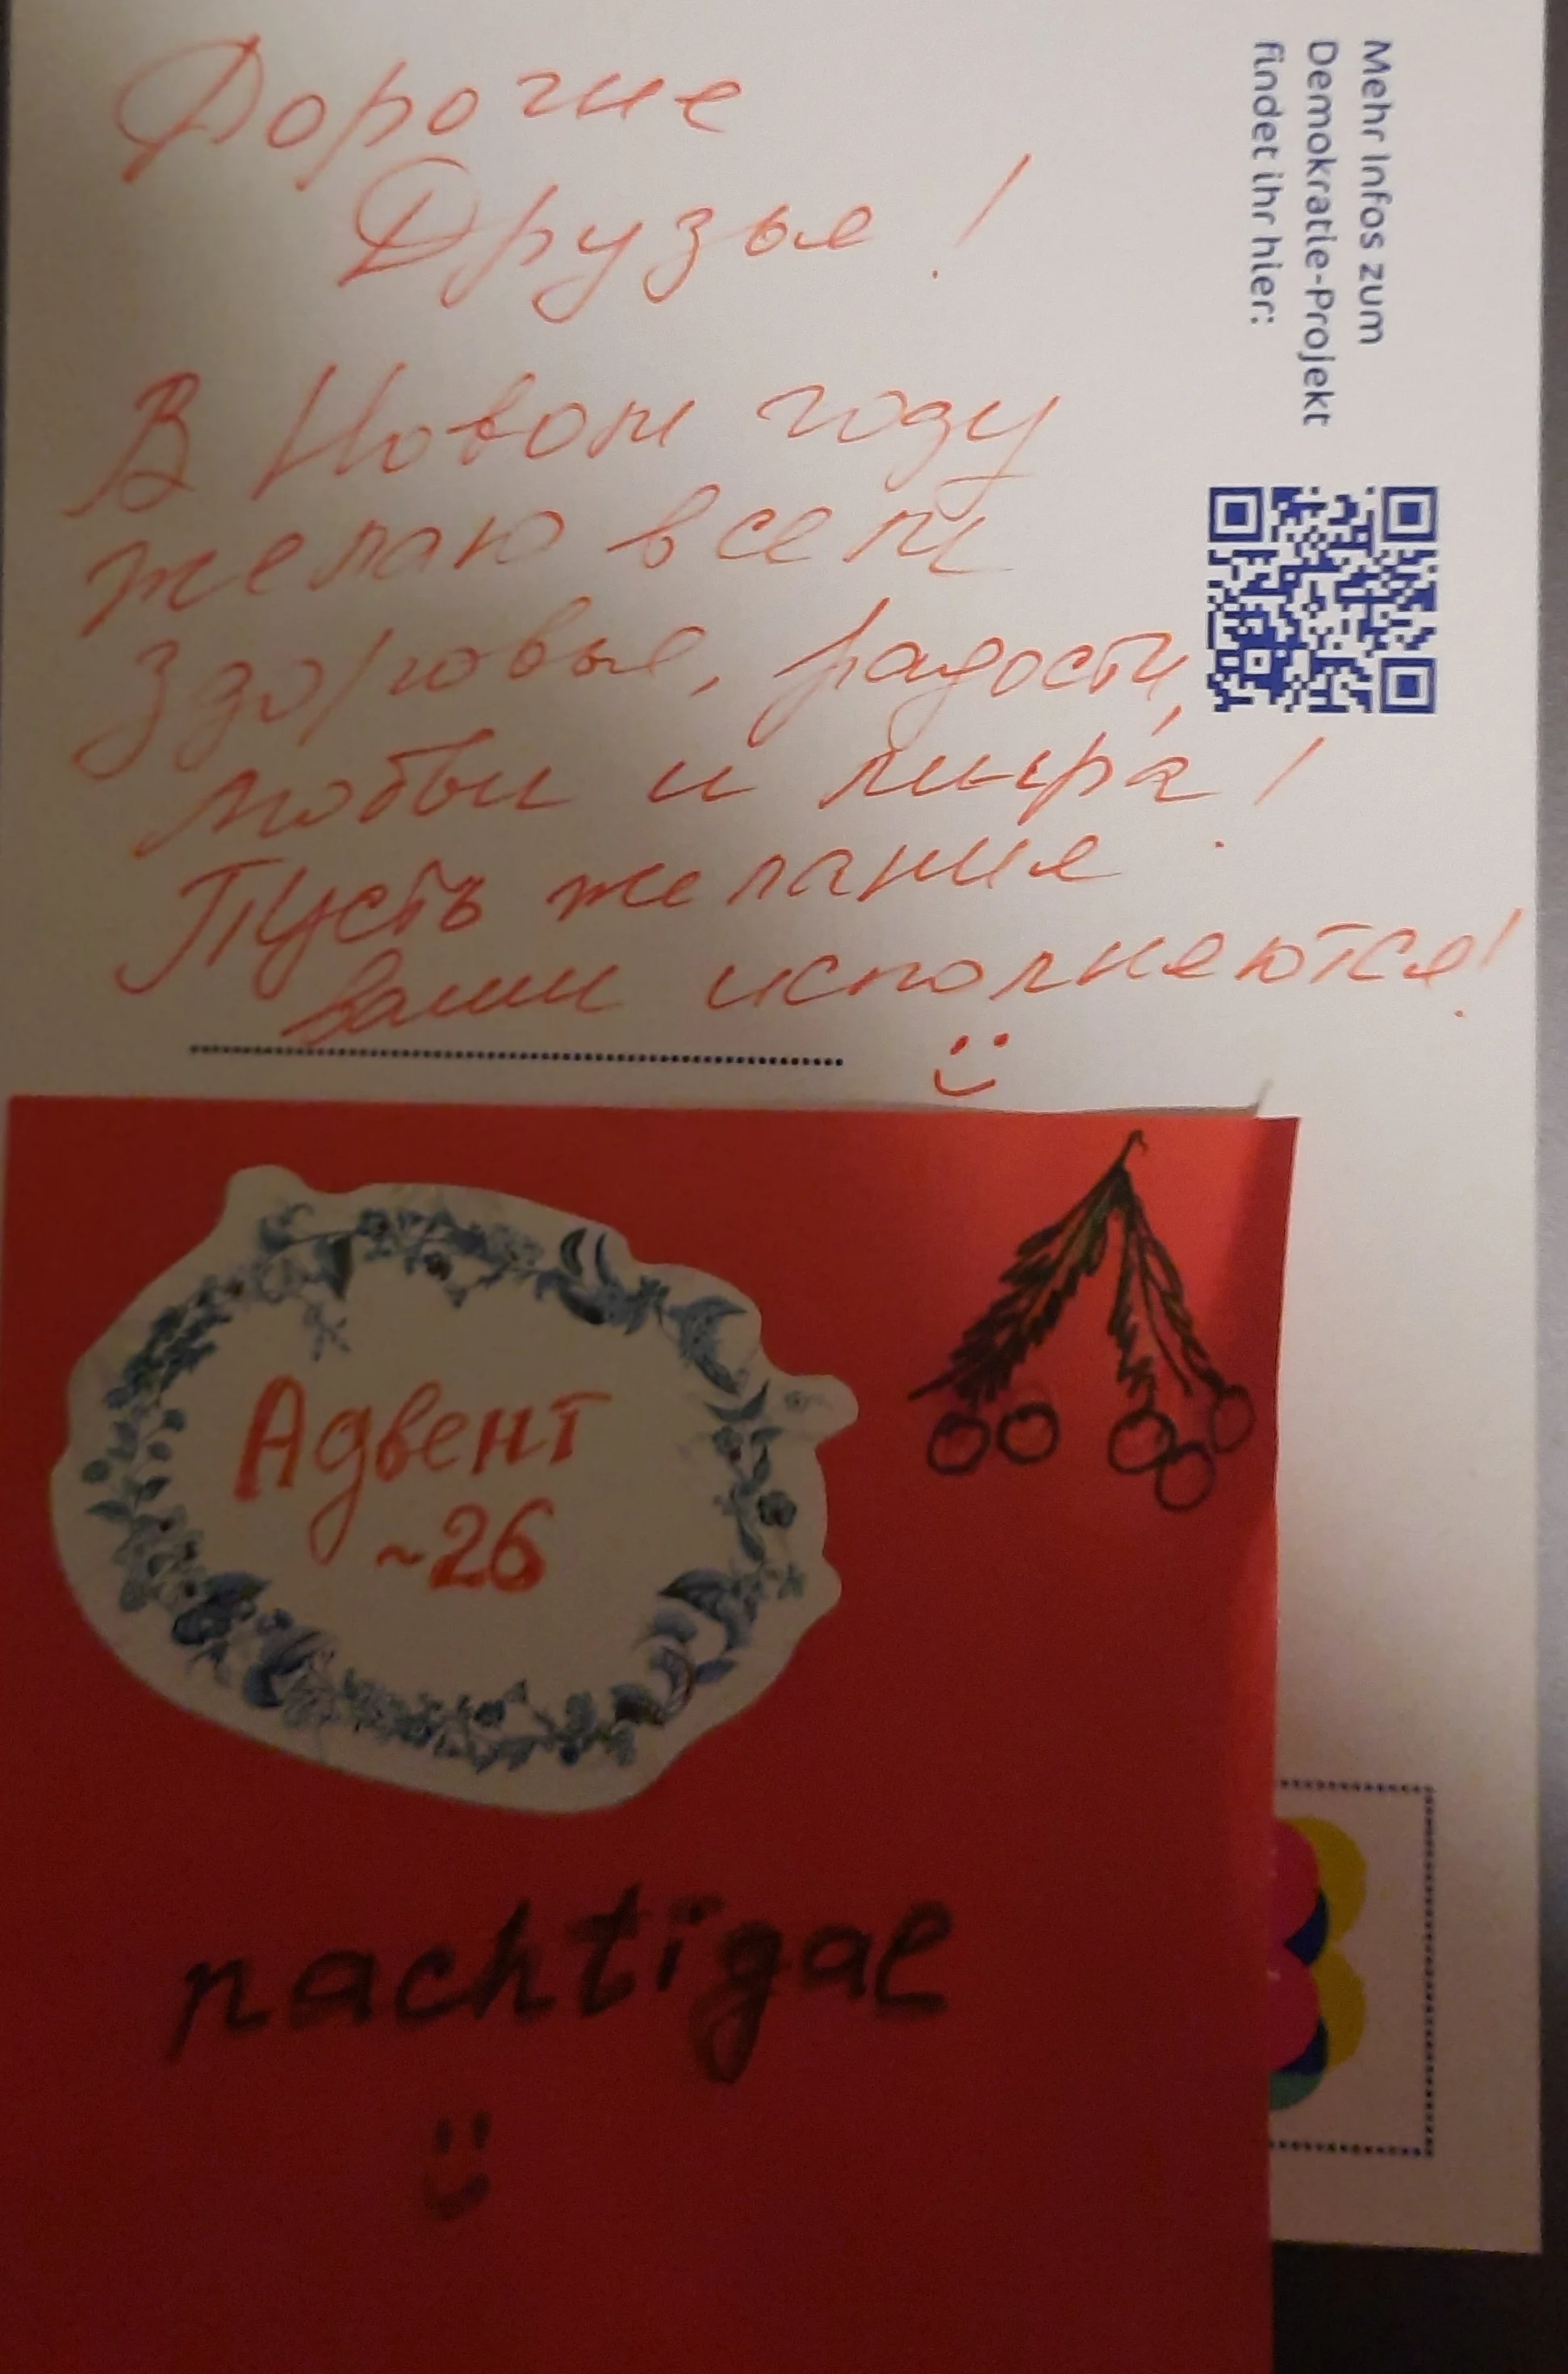 Дорогие
Друзья!
В Новом году
желаю всем
здоровья, радости,
любви и мира!
Пусть желания
ваши исполняются!
Mehr Infos zum
Demokratie-Projekt
findet ihr hier:
Адвент
~26
nachtigal